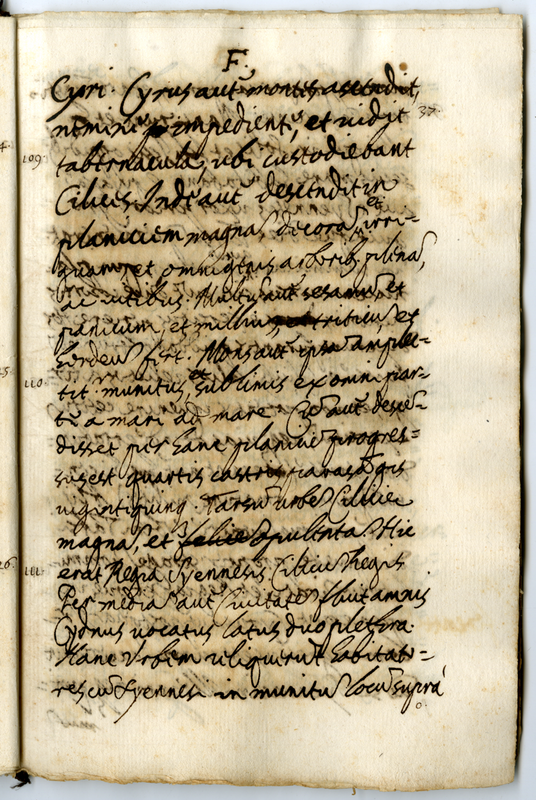 F.
Cyri. Cyrus aut̃ montes ascendit,
nemine impediente, et vidit 37.
109 tabernacula, ubi custodiebant
Cilices. Inde aut̃ descendit in
planiciem magnã, decorã, et irri=
guam, et omnigenis arborib. plenã,
ac vitibus. Multũ aut̃ sesamũ, et
panicum, et milliũ, et triticũ, et
hordeũ fert. Mons aut̃ ipsã amplec=
110 tit̃ munitus, et sublimis ex omni par=
te a mari ad mare. Cũ aut̃ descẽ=
disset per hanc planiciẽ progres=
sus est quartis castris parasãgis
viginti quinq. Tarsũ urbẽ Ciliciæ
magnã, et opulentã. Hic
111 erat Regia Syennesis Cilicũ Regis
Per mediã aut̃ Civitatẽ fluit amnis
Cydnus vocatus latus duo plethra.
Hanc Urbem reliquerũt habitato=
res cũ Syennesi in munitũ locũ suprà